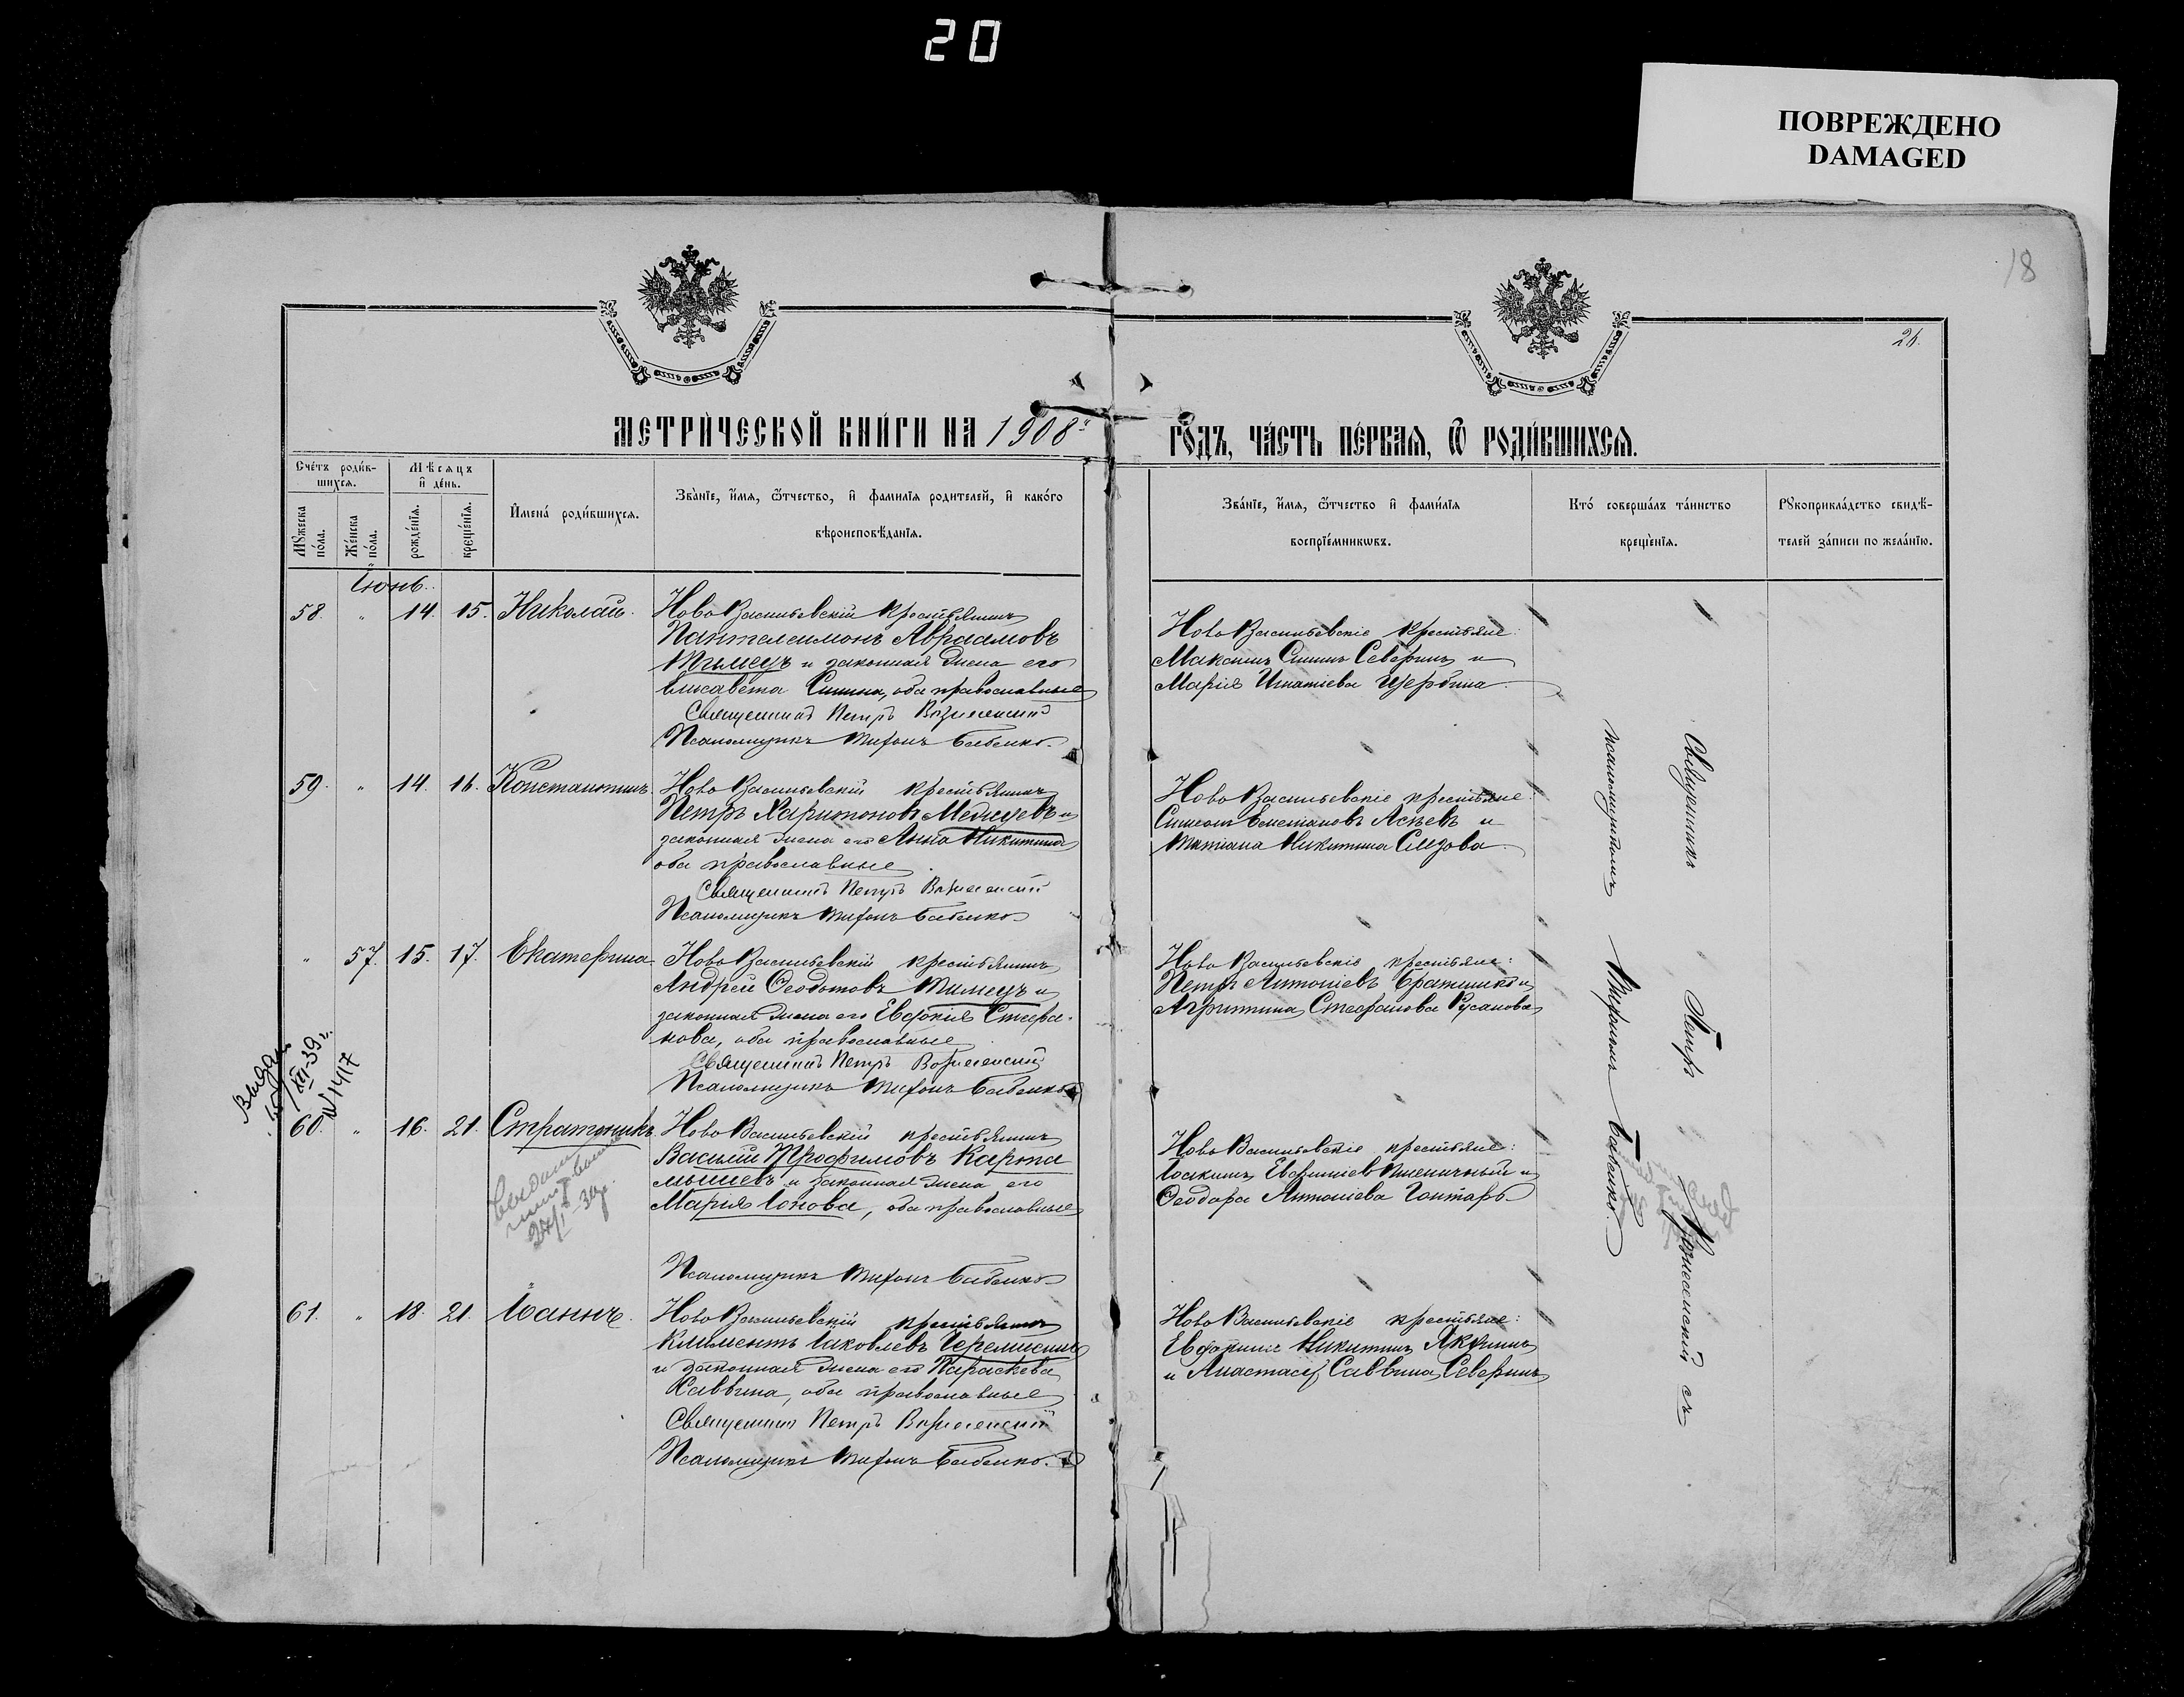 20
ПОВРЕЖДЕНО
DAMAGED
18
21.
МЕТРИ́ЧЕСКОЙ КНИ́ГИ НА 1908й
ГО́ДЪ, ЧА́СТЬ ПЕ́РВАѦ, Ѿ РОДИ́ВШИХСѦ.
Сче́тъ роди́в-
шихсѧ.
Мѣ́сѧцъ
и҆ де́нь.
Мꙋ́жеска
по́ла.
Же́нска
по́ла.
рожде́нїѧ.
креще́нїѧ.
И҆мена́ роди́вшихсѧ.
Зва́нїе, и҆́мѧ, ѻ҆́тчество, и҆ фами́лїѧ родителей, и҆ како́го
вѣроисповѣ́данїѧ.
Зва́нїе, и҆́мѧ, ѻ҆́тчество и҆ фами́лїѧ
воспрїе́мникѡвъ.
Кто́ соверша́лъ та́инство
креще́нїѧ.
Рꙋкоприкла́дство свидѣ́-
телей за́писи по жела́нїю.
Іюнь.
58. " 14. 15. Николай.
НовоВасильевскій крестьянинъ
Пантелеимонъ Авраамовъ
Тымецъ и законная жена его
Елисавета Сишна, оба православные
Священникъ Петръ Вознесенскій
Псаломщикъ Тифонъ Бабенко.
НовоВасильевскіе крестьяне:
Максимъ Сишнъ Северинъ и
Марія Игнатіева Щербина.
59. " 14. 16. Константинъ.
НовоВасильевскій крестьянинъ
Петръ Харитоновъ Медведевъ и
законная жена его Анна Никитина
оба православные
Священникъ Петръ Вознесенскій
Псаломщикъ Тифонъ Бабенко
НовоВасильевскіе крестьяне:
Симеонъ Асѣевъ и
Татіана Никитина
" 57. 15. 17. Екатерина.
НовоВасильевскій крестьянинъ
Андрей Феодотовъ Тимецъ и
законная жена его Евдокія Стефа-
нова, оба православные
Священникъ Петръ Вознесенскій
Псаломщикъ Тифонъ Бабенко
НовоВасильевскіе крестьяне:
Петръ Антоніевъ и
Агриппина Стефанова Русанова
XII-39г.
№1417
60. " 16. 21. Стратоникъ.
НовоВасильевскій крестьянинъ
Василій Трофимовъ Карта
мышевъ и законная жена его
Марія Іонова, оба православные
Псаломщикъ Тифонъ Бабенко
НовоВасильевскіе крестьяне:
Іоакимъ Евфиміевъ Пшеничный и
Феодора Антоніева Гонтарь
61. " 18. 21. Іоаннъ.
НовоВасильевскій крестьянинъ
Климентъ Іаковлевъ Черемисинъ
и законная жена его Параскева
Саввина, оба православные
Священникъ Петръ Вознесенскій
Псаломщикъ Тифонъ Бабенко.
НовоВасильевскіе крестьяне:
Евдокимъ Никитинъ Якунинъ
и Анастасія Саввина Северинъ
Священникъ Петръ Вознесенскій съ
псаломщикомъ Тифономъ Бабенко.